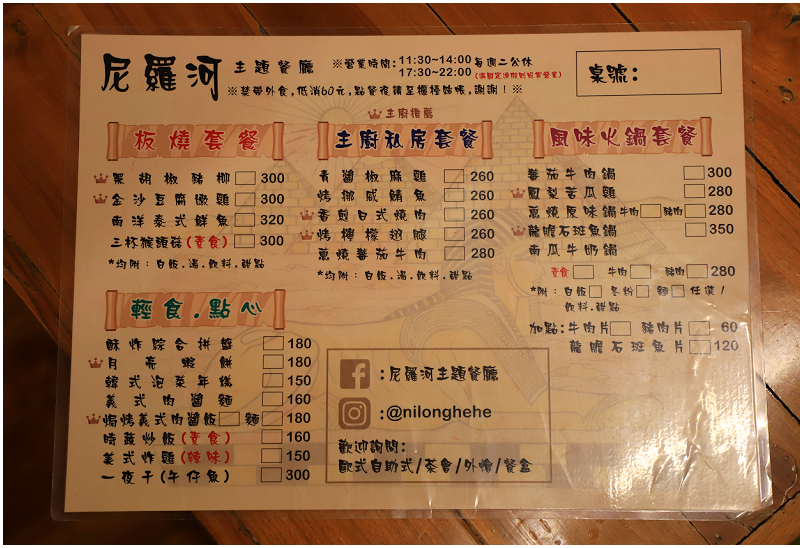 尼羅河 主題餐廳 ※營業時間:11:30~14:00 每週二公休
17:30~22:00
※禁帶外食,低消60元,點餐後請至櫃檯結帳,謝謝!※
桌號:
主廚推薦
板燒套餐
黑胡椒豬柳 300
金沙豆腐嫩雞 300
南洋泰式鮮魚 320
三杯猴頭菇(素食) 300
*均附:白飯.湯.飲料.甜點
主廚私房套餐
青醬椒麻雞 260
烤挪威鯖魚 260
香煎日式燒肉 260
烤檸檬翅腿 260
蔥燒蕃茄牛肉 280
*均附:白飯.湯.飲料.甜點
風味火鍋套餐
蕃茄牛肉鍋 300
鳳梨苦瓜雞 280
蔥燒原味鍋 牛肉 豬肉 280
龍膽石斑魚鍋 350
南瓜牛奶鍋
素食 牛肉 豬肉 280
*附:白飯 冬粉 麵 任選/
飲料.甜點
加點:牛肉片 豬肉片 60
龍膽石斑魚片 120
輕食.點心
酥炸綜合拼盤 180
月亮蝦餅 180
韓式泡菜年糕 150
義式肉醬麵 160
焗烤義式肉醬飯 麵 180
時蔬炒飯(素食) 160
美式炸雞(辣味) 150
一夜干(午仔魚) 300
:尼羅河主題餐廳
:@nilonghehe
歡迎詢問:
歐式自助式/茶會/外燴/餐盒